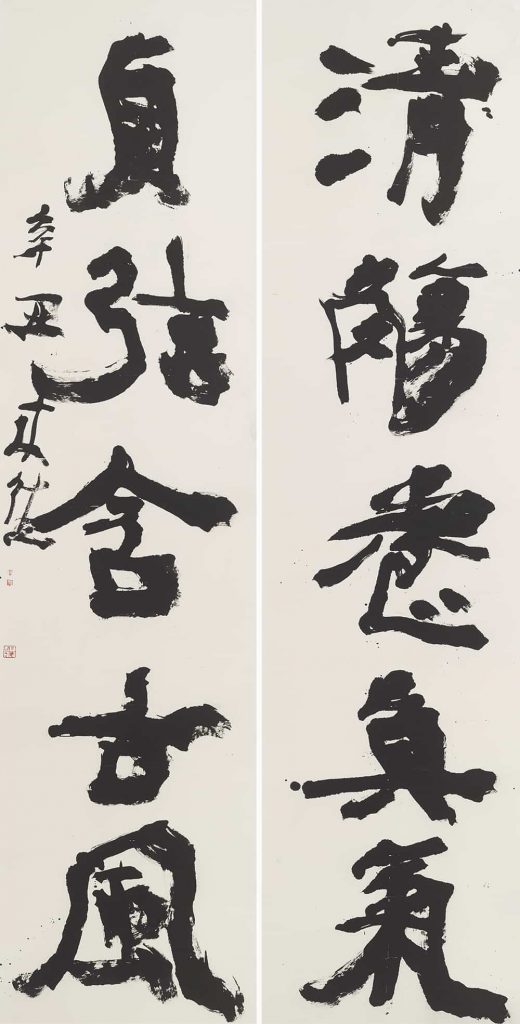 清觴養真氣
貞弦含古風
辛丑